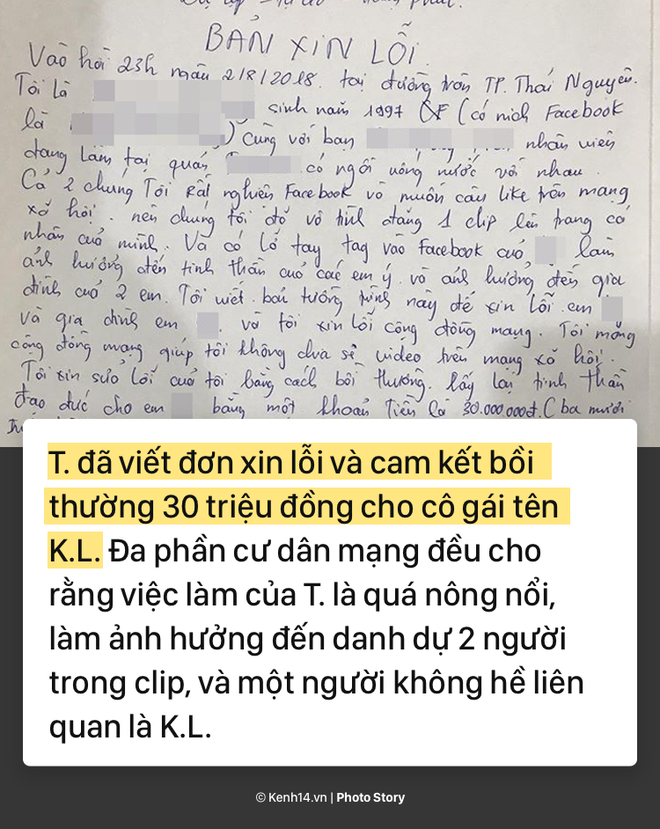 BẢN XIN LỖI
Vào hồi 23h ngày 2/8/2018. tại đường tròn TP. Thái Nguyên.
Tôi Là
sinh năm 1997 (có nich Facebook
là ) Cùng với bạn nhân viên
đang làm tại quán có ngồi uống nước với nhau.
Cả 2 chúng Tôi Rất nghiện Facebook và muốn câu like trên mạng
xã hội. nên chúng tôi đã vô tình đăng 1 clip lên trang cá
nhân của mình. Và có lỡ tay tag vào Facebook của làm
ảnh hưởng đến tinh thần của các em ý. và ảnh hưởng đến gia
đình của 2 em. Tôi viết bản tường trình này để xin lỗi em
và gia đình em . và tôi xin lỗi cộng đồng mạng. Tôi mong
cộng đồng mạng giúp tôi không chia sẻ video trên mạng xã hội.
Tôi xin sửa lỗi của tôi bằng cách bồi thường. lấy lại tinh thần
đạo đức cho em bằng một khoản Tiền là 30.000.000đ. (ba mươi
T. đã viết đơn xin lỗi và cam kết bồi
thường 30 triệu đồng cho cô gái tên
K.L. Đa phần cư dân mạng đều cho
rằng việc làm của T. là quá nông nổi,
làm ảnh hưởng đến danh dự 2 người
trong clip, và một người không hề liên
quan là K.L.
© Kenh14.vn | Photo Story